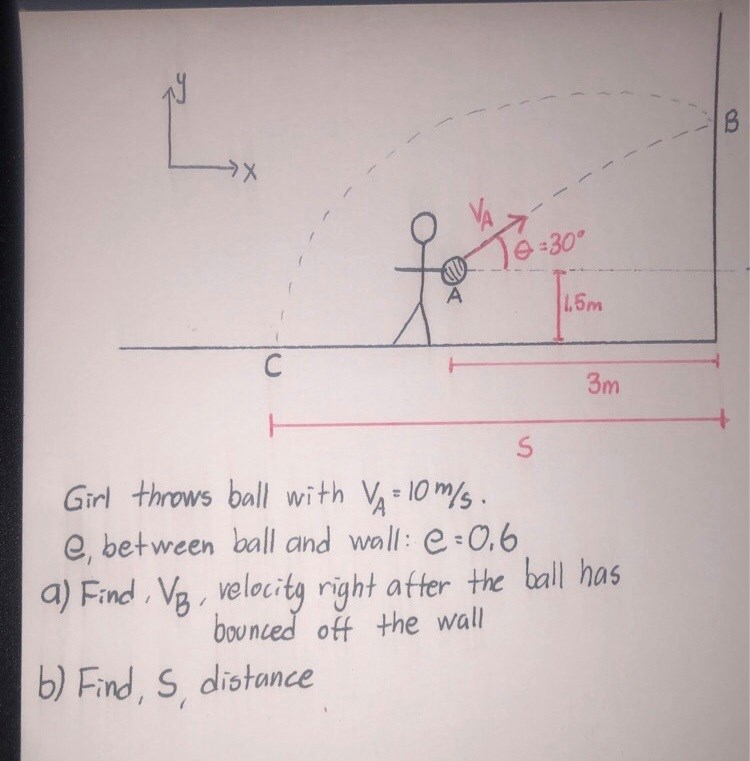 y
x
B
VA
θ=30°
A
1.5m
C
3m
S
Girl throws ball with VA = 10 m/s.
e, between ball and wall: e = 0.6
a) Find, VB, velocity right after the ball has
bounced off the wall
b) Find, S, distance